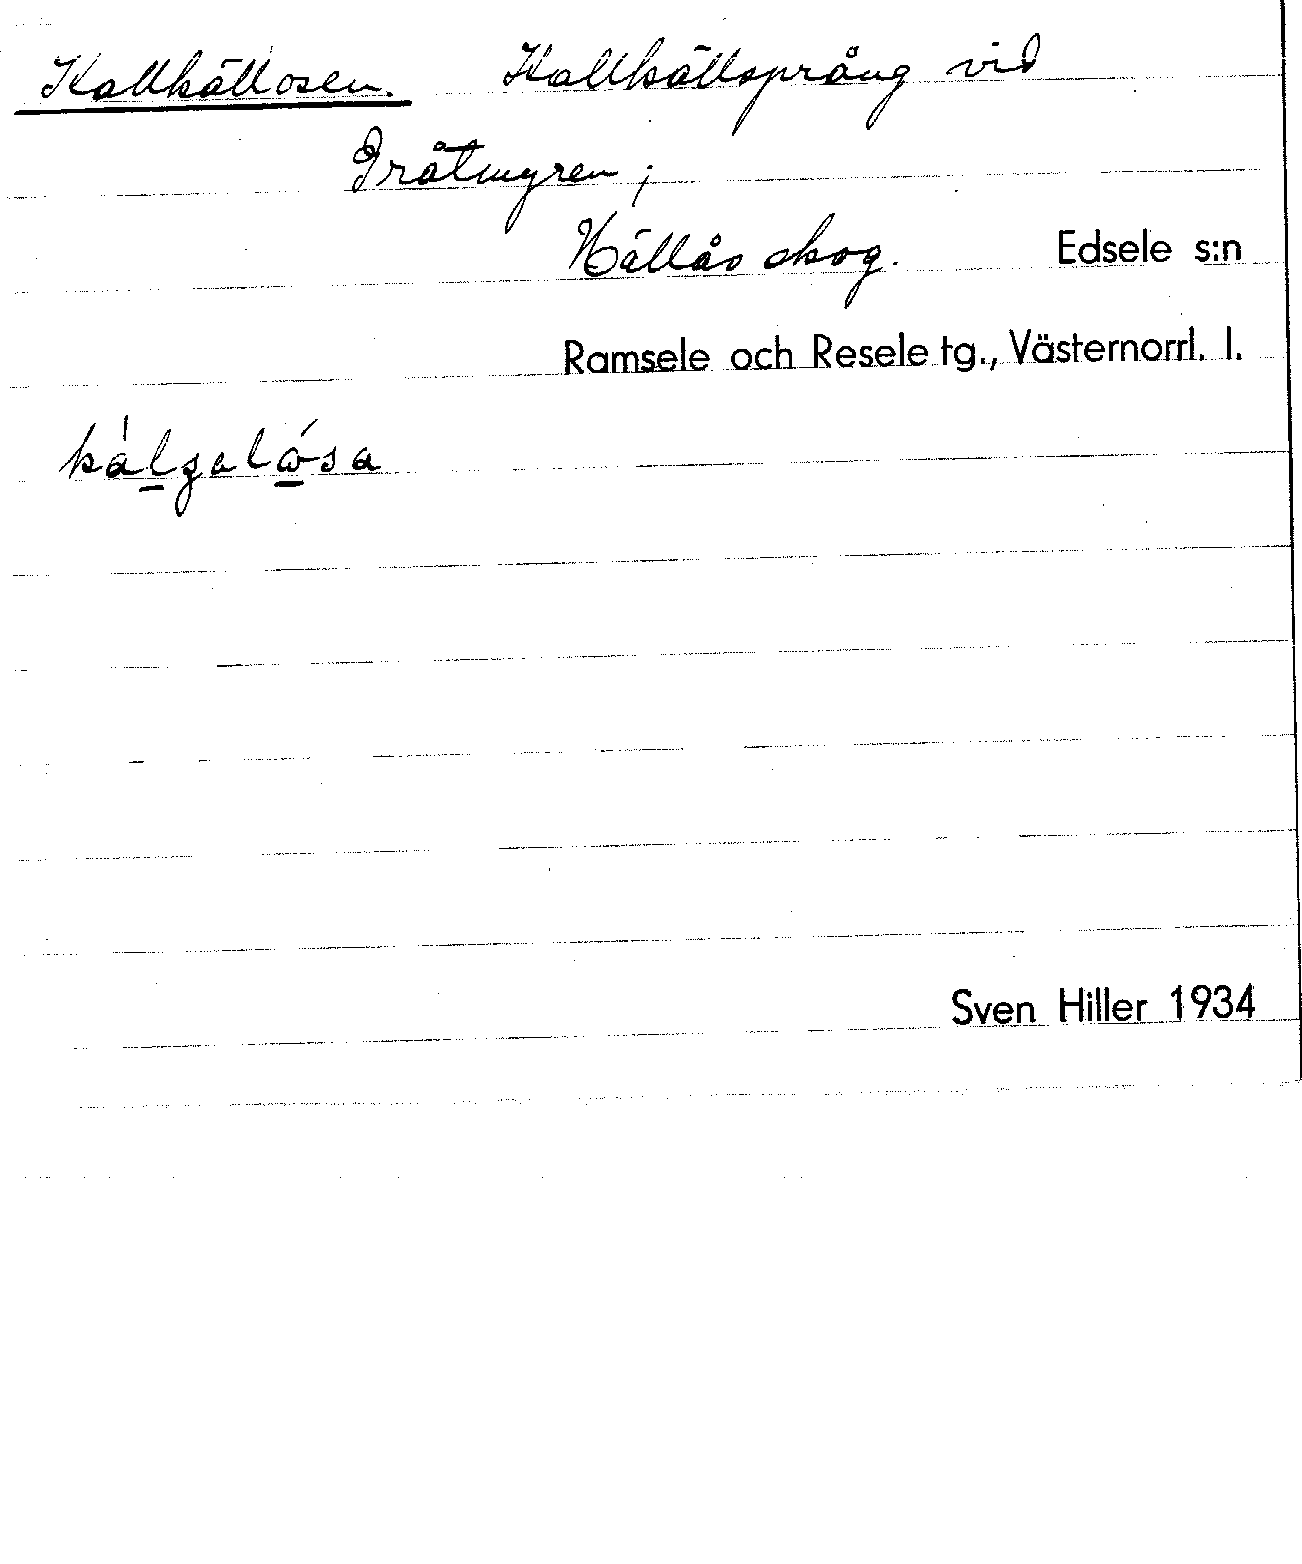 Kallkällosen. Kallkällsprång vid
Gråtmyren;
Hällås skog. Edsele s:n
Ramsele och Resele tg., Västernorrl. l.
Sven Hiller 1934